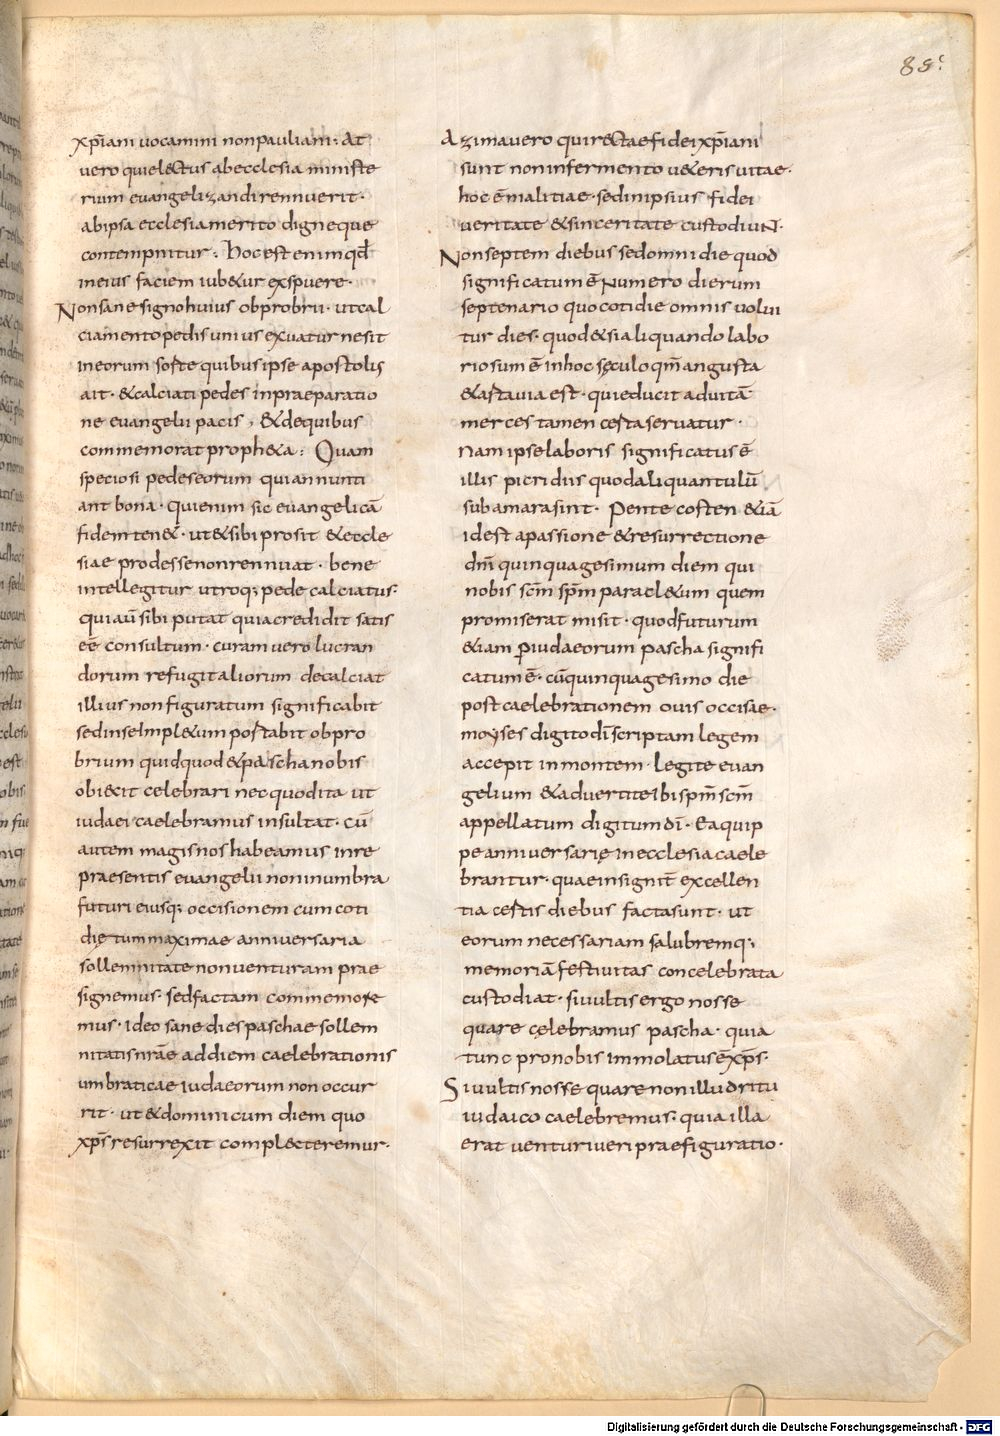 85.
xp̄iani uocamini non pauliani. At
uero qui electus ab ecclesia ministe
rium euangelizandi rennuerit.
ab ipsa ecclesia merito digneque
contempnitur. Hoc est enim qd̄
in eius faciem iubetur exspuere.
Non sane signo huius obprobrii. ut cal
ciamento pedis unius exuatur ne sit
in eorum sorte quibus ipse apostolis
ait. & calciati pedes in praeparatio
ne euangelii pacis, & de quibus
commemorat propheta: Quam
speciosi pedes eorum qui annunti
ant bona. Qui enim sic euangelicā
fidem ten&. ut & sibi prosit & eccle
siae prodesse non rennuat. bene
intellegitur utroq; pede calciatus.
qui aū sibi putat quia credidit satis
eē consultum. curam uero lucran
dorum refugit aliorum decalciat
illius non figuratum significabit
sed in se impl&um portabit obpro
brium quid quod & pascha nobis
obiecit celebrari nec quod ita ut
iudaei caelebramus insultat. Cū
autem magis nos habeamus in re
praesentis euangelii non in umbra
futuri eiusq; occisionem cum coti
die tum maximae anniuersaria
sollemnitate non uenturam prae
signemus. sed factam commemore
mus. ideo sane dies paschae sollem
nitatis nr̄ae ad diem caelebrationis
umbraticae iudaeorum non occur
rit. ut & dominicum diem quo
xp̄s resurrexit complecteremur.
Azima uero qui rectae fidei xp̄iani
sunt non in fermento u&eris uitae.
hoc ē malitiae. sed in ipsius fidei
ueritate & sinceritate custodiuNt.
Non septem diebus sed omni die quod
significatum ē Numero dierum
septenario quo cotidie omnis uolui
tur dies. quod & si aliquando labo
riosum ē in hoc sęculo qm̄ angusta
& arta uia est. quie ducit ad uitā
merces tamen certa seruatur.
Nam ipse laboris significatus ē
illis picridiis quod aliquantulū
subamara sint. Pentecosten &iā
id est a passione & resurrectione
dn̄i quinquagesimum diem qui
nobis sc̄m sp̄m paracl&um quem
promiserat misit. quod futurum
&iam p̄ iudaeorum pascha signifi
catum ē. cū quinquagesimo die
post caelebrationem ouis occisae.
moyses digito dī scriptam legem
accepit in montem. legite euan
gelium & aduertite ibi sp̄m sc̄m
appellatum digitum dī. Ea quip
pe anniuersarię in ecclesia caele
brantur. quae insignit̄ excellen
tia certis diebus facta sunt. ut
eorum necessariam salubremq;
memoriā festiuitas concelebrata
custodiat. si uultis ergo nosse
quare cęlebramus pascha. quia
tunc pro nobis immolatus ē xp̄s.
Si uultis nosse quare non illud ritu
iudaico caelebremus. quia illa
erat uenturi ueri praefiguratio.
Digitalisierung gefördert durch die Deutsche Forschungsgemeinschaft - DFG